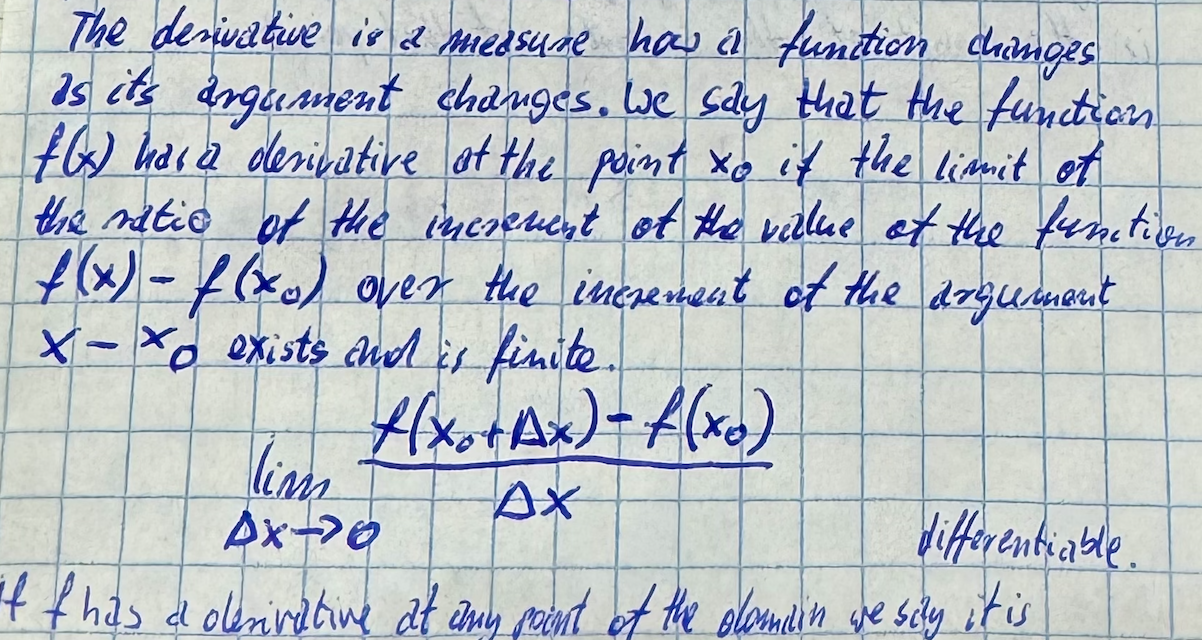 The derivative is a measure how a function changes
as its argument changes. We say that the function
f(x) has a derivative at the point x₀ if the limit of
the ratio of the increment of the value of the function
f(x) - f(x₀) over the increment of the argument
x - x₀ exists and is finite.
f(x₀+Δx) - f(x₀)
lim
Δx
Δx→0
differentiable.
If f has a derivative at any point of the domain we say it is